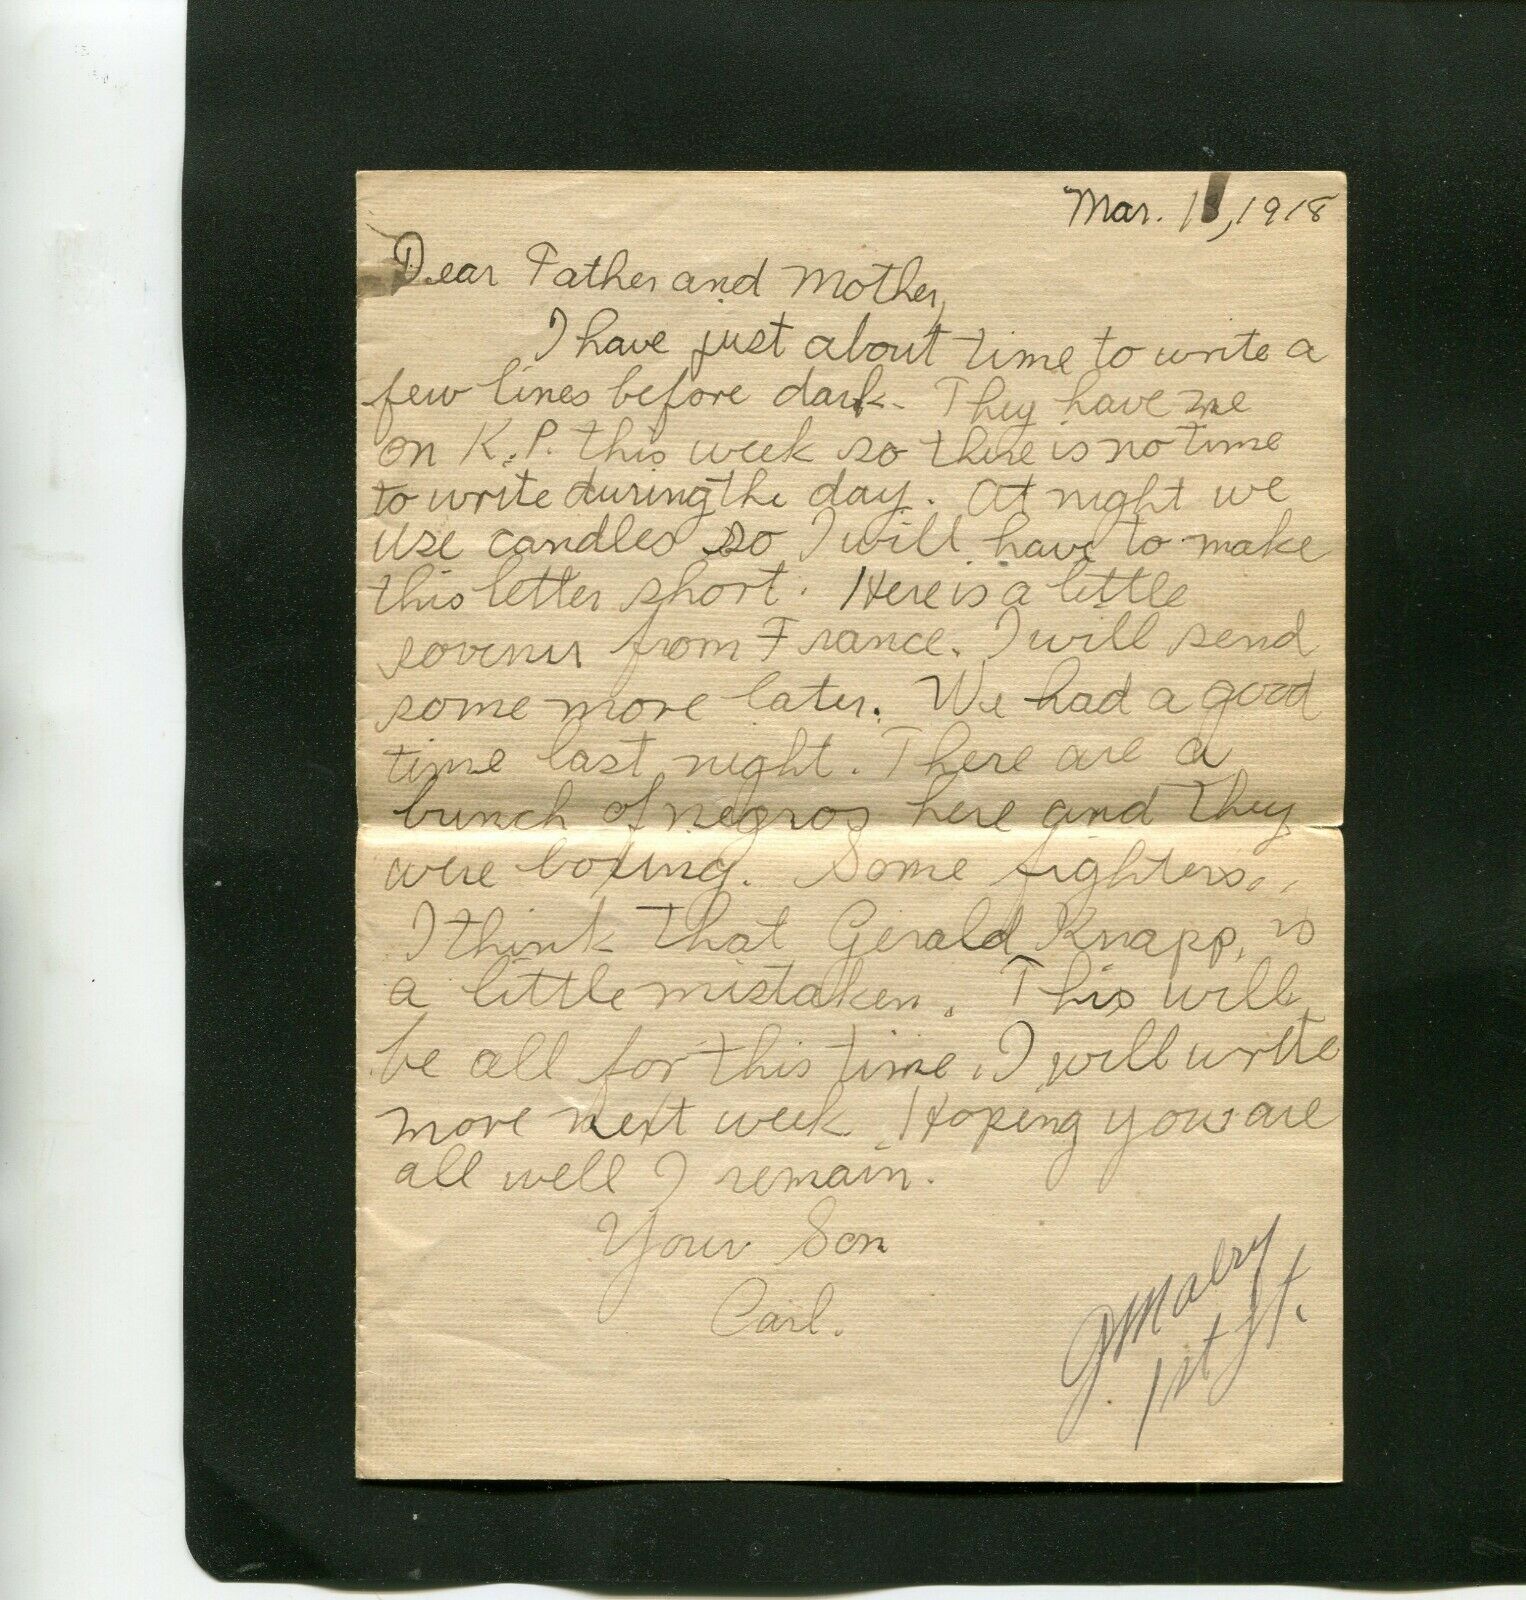 Mar. 18, 1918
Dear Father and Mother,
I have just about time to write a
few lines before dark. They have me
on K.P. this week so there is no time
to write during the day. At night we
use candles so I will have to make
this letter short. Here is a little
sovenir from France. I will send
some more later. We had a good
time last night. There are a
bunch of negros here and they
were boxing. Some fighters.
I think that Gerald Knapp, is
a little mistaken. This will
be all for this time. I will write
more next week. Hoping you are
all well I remain.
Your Son
Carl.
1st Lt.